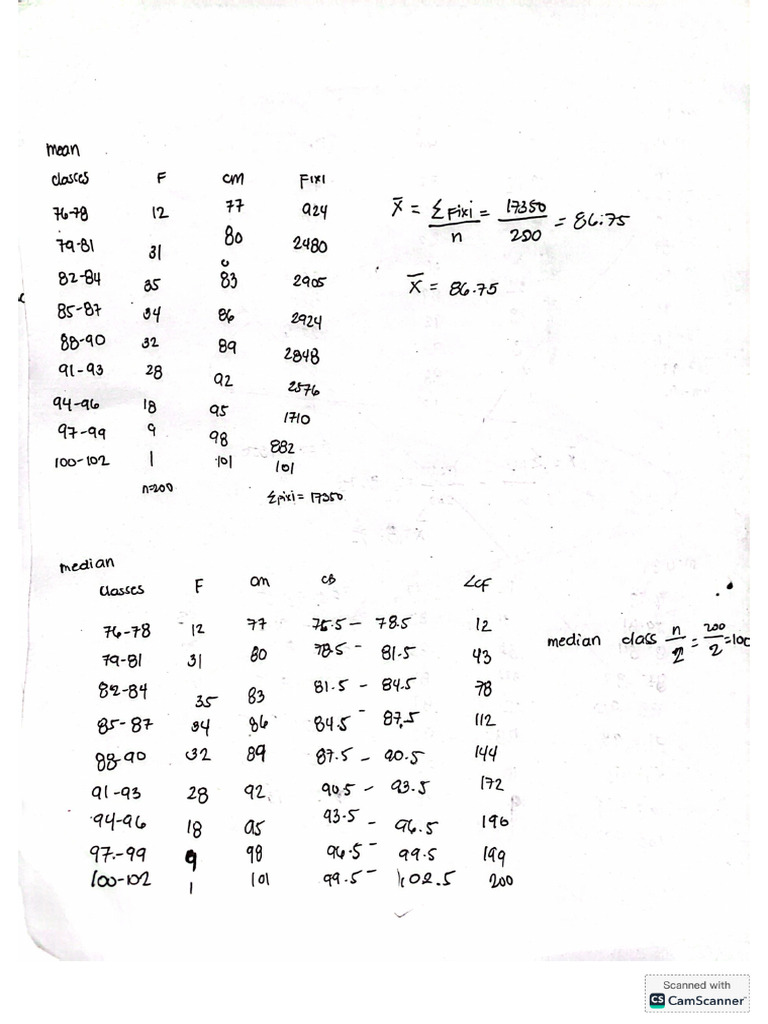 mean
classes F CM Fixi
76-78 12 77 924
79-81 31 80 2480
82-84 35 83 2905
85-87 34 86 2924
88-90 32 89 2848
91-93 28 92 2576
94-96 18 95 1710
97-99 9 98 882
100-102 1 101 101
n=200 Σfixi = 17350
x̄ = ΣFixi/n = 17350/200 = 86.75
x̄ = 86.75
median
classes F CM CB <CF
76-78 12 77 75.5 - 78.5 12
79-81 31 80 78.5 - 81.5 43
82-84 35 83 81.5 - 84.5 78
85-87 34 86 84.5 - 87.5 112
88-90 32 89 87.5 - 90.5 144
91-93 28 92 90.5 - 93.5 172
94-96 18 95 93.5 - 96.5 190
97-99 9 98 96.5 - 99.5 199
100-102 1 101 99.5 - 102.5 200
median class n/2 = 200/2 = 100
Scanned with
CS CamScanner